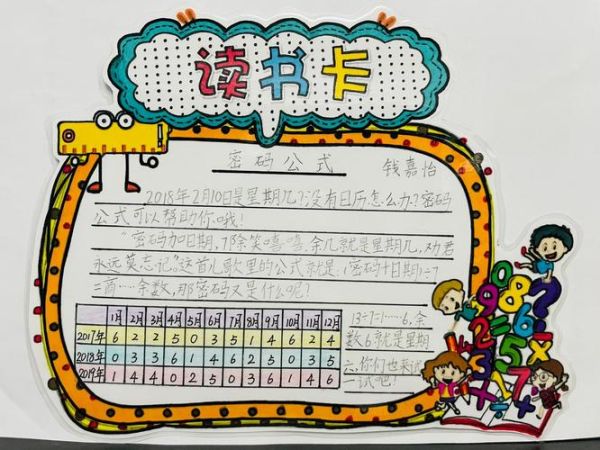 读书卡
密码公式 钱嘉怡
2018年2月10日是星期几?没有日历怎么办?密码
公式可以帮助你哦!
“密码加日期,7除笑嘻嘻,余几就是星期几,劝君
永远莫忘记”。这首儿歌里的公式就是:(密码+日期)÷7
=商……余数,那密码又是什么呢?
1月 2月 3月 4月 5月 6月 7月 8月 9月 10月 11月 12月
2017年 6 2 2 5 0 3 5 1 4 6 2 4
2018年 0 3 3 6 1 4 6 2 5 0 3 5
2019年 1 4 4 0 2 5 0 3 6 1 4 6
13÷7=1……6,余
数6就是星期
六。你们也来试
一试吧!